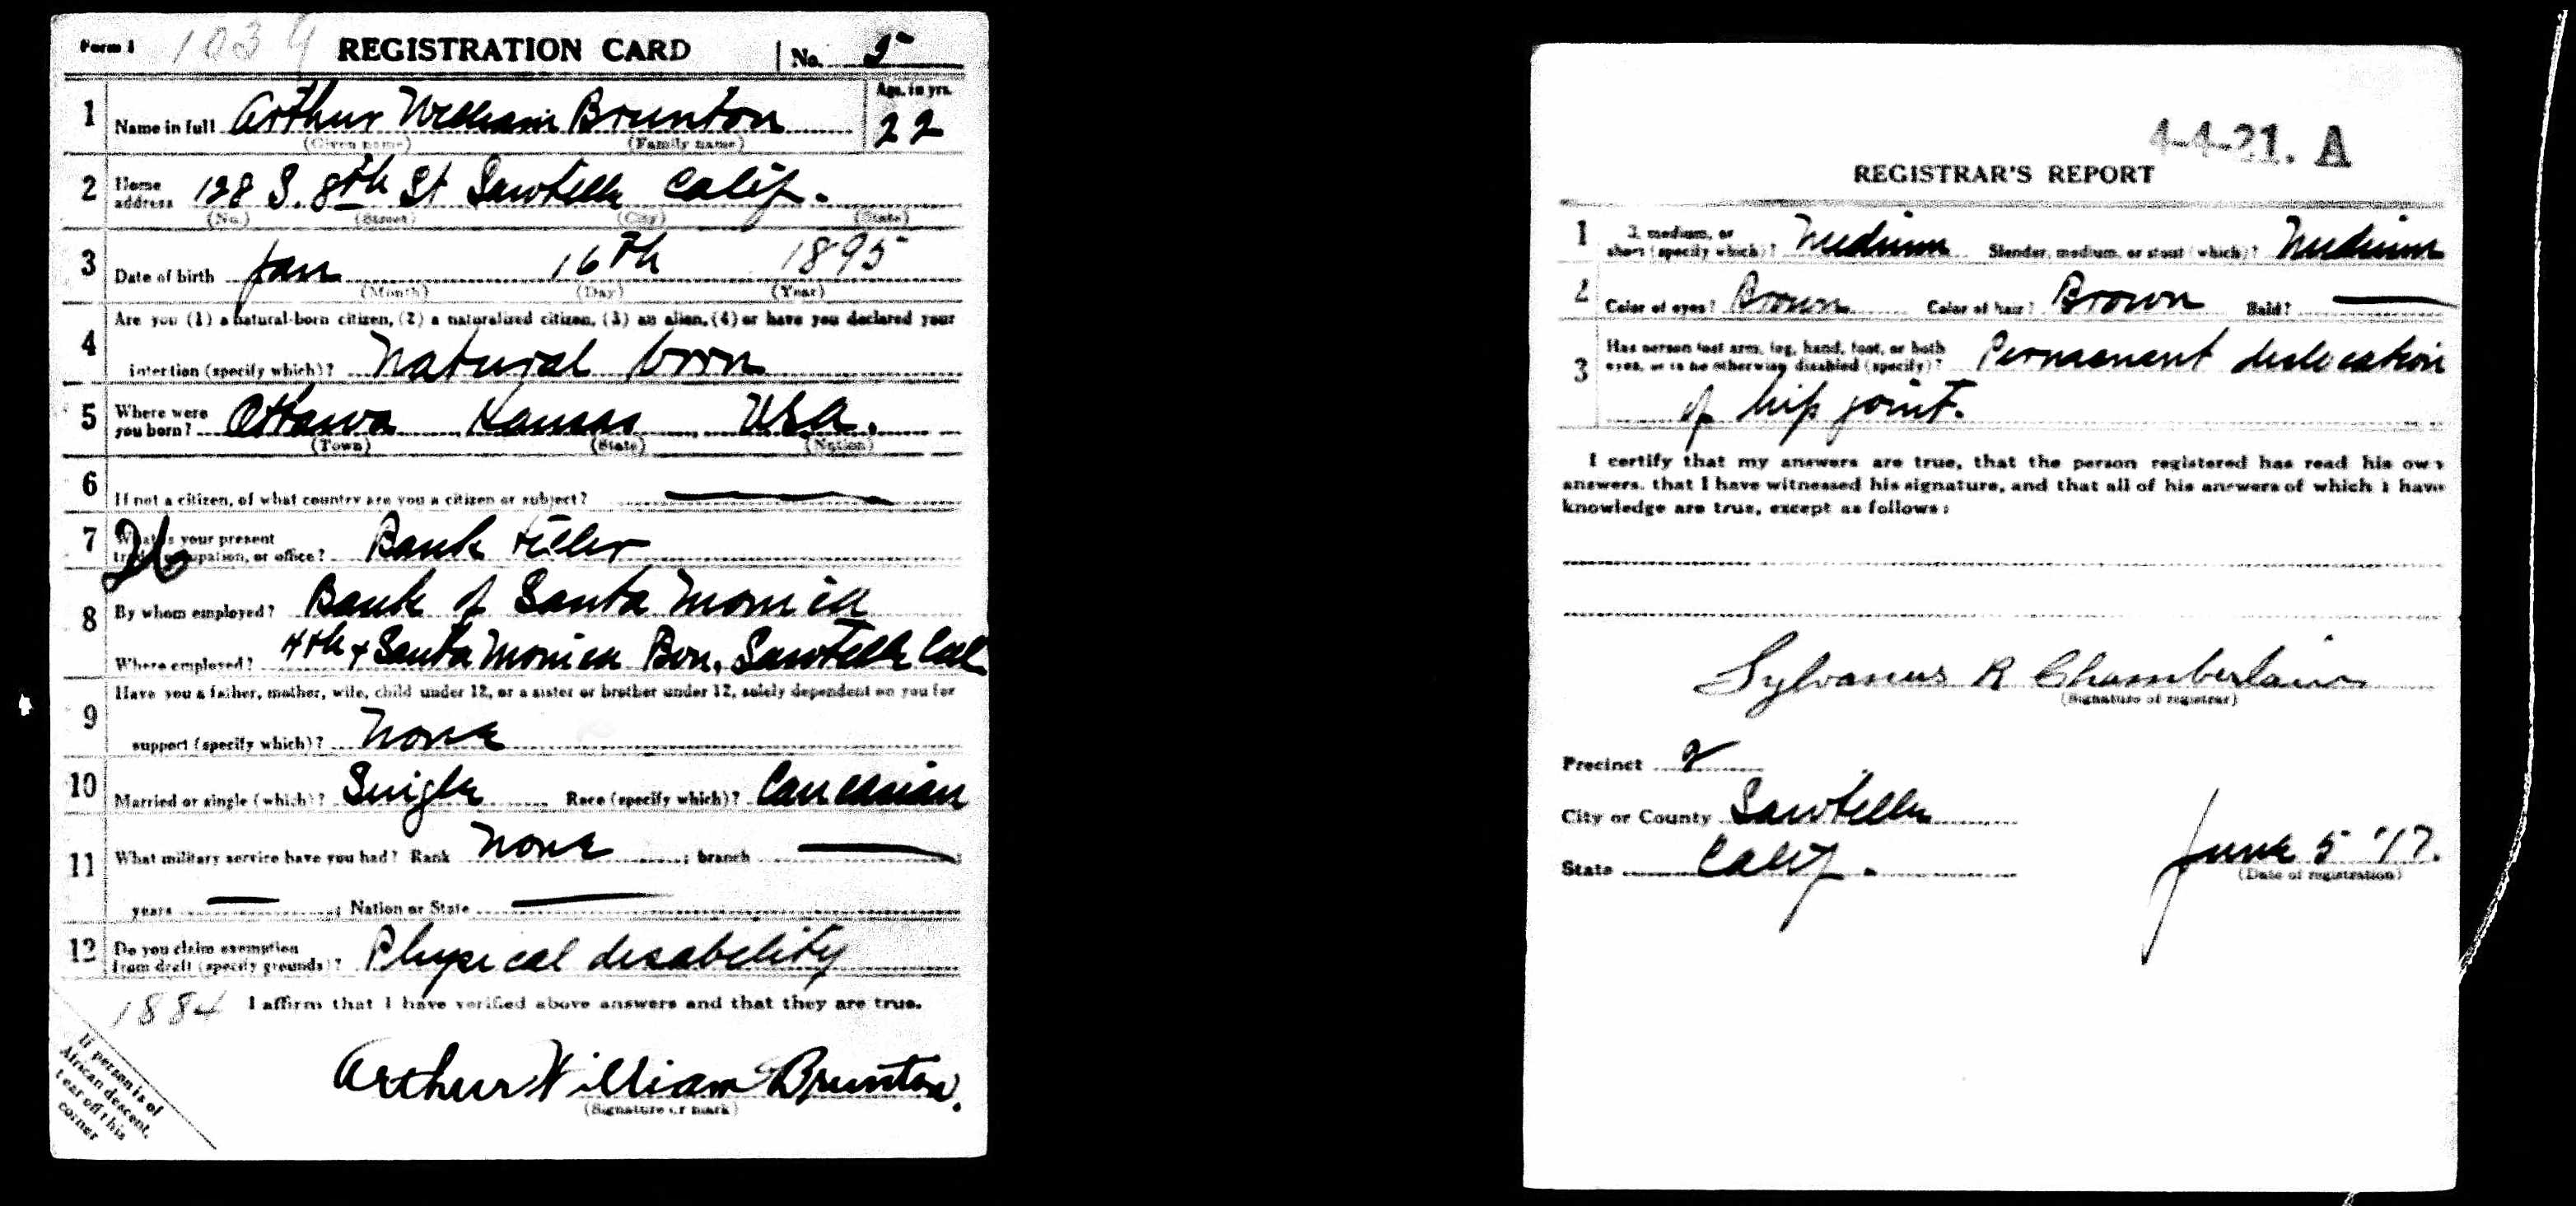 Form 1 1039 REGISTRATION CARD No. 5
1 Name in full Arthur William Brunton Age, in yrs. 22
(Given name) (Family name)
2 Home address 128 S. 8th St Sawtelle Calif.
(No.) (Street) (City) (State)
3 Date of birth Jan 16th 1895
(Month) (Day) (Year)
4 Are you (1) a natural-born citizen, (2) a naturalized citizen, (3) an alien, (4) or have you declared your
intention (specify which)? Natural born
5 Where were you born? Ottawa Kansas USA.
(Town) (State) (Nation)
6 If not a citizen, of what country are you a citizen or subject?
7 What is your present trade, occupation, or office? Bank teller
26
8 By whom employed? Bank of Santa Monica
Where employed? 4th + Santa Monica Bou, Sawtelle Cal
9 Have you a father, mother, wife, child under 12, or a sister or brother under 12, solely dependent on you for
support (specify which)? None
10 Married or single (which)? Single Race (specify which)? Caucasian
11 What military service have you had? Rank None ; branch ;
years ; Nation or State
12 Do you claim exemption from draft (specify grounds)? Physical disability
1884 I affirm that I have verified above answers and that they are true.
Arthur William Brunton.
(Signature or mark)
If person is of
African descent,
tear off this
corner
4-4-21. A
REGISTRAR'S REPORT
1 medium, or short (specify which)? Medium Slender, medium, or stout (which)? Medium
2 Color of eyes? Brown Color of hair? Brown Bald?
3 Has person lost arm, leg, hand, foot, or both eyes, or is he otherwise disabled (specify)? Permanent dislocation
of hip joint.
I certify that my answers are true, that the person registered has read his own
answers, that I have witnessed his signature, and that all of his answers of which I have
knowledge are true, except as follows:
Sylvanus R Chamberlain
(Signature of registrar)
Precinct 2
City or County Sawtelle
State Calif. June 5 '17.
(Date of registration)